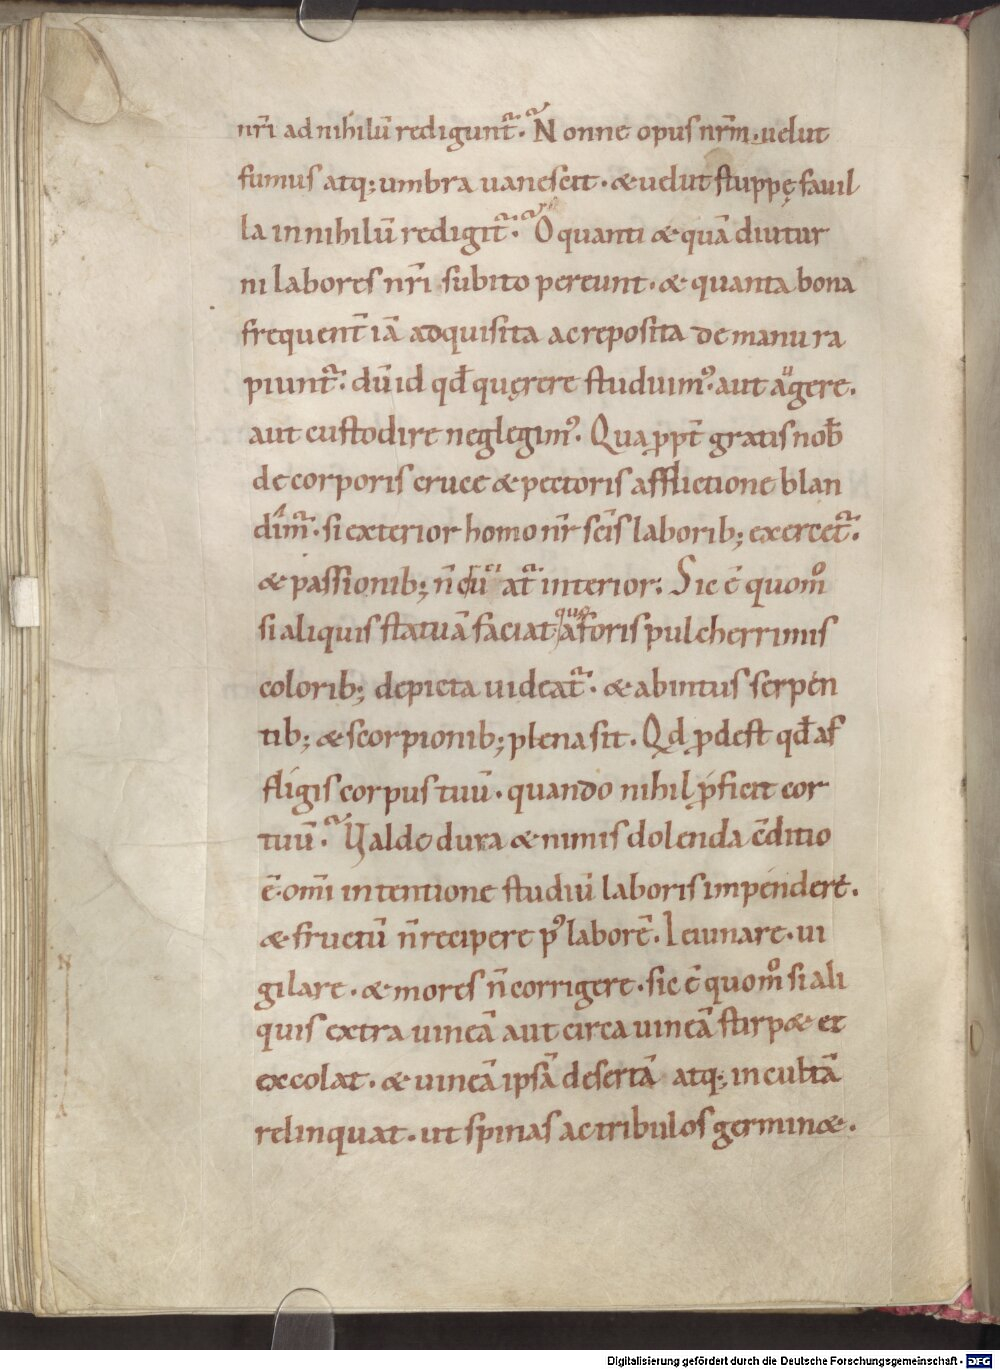 nr̄i ad nihilū redigunt᷑. Nonne opus nr̄m. uelut
fumus atq; umbra uanescit. & uelut stuppę fauil
la in nihilū redigit᷑. O quanti & quā diutur
ni labores nr̄i subito pereunt. & quanta bona
frequent̄ iā adquisita ac reposita de manu ra
piunt᷑. dū id qd̄ quęrere studuim᷒. aut augere.
aut custodire neglegim᷒. Qua ꝓpt̄ gratis nob̄
de corporis cruce & pectoris afflictione blan
dim᷑. si exterior homo nr̄ scīs laborib; exercet᷑.
& passionib; n̄ cur̄ at᷑ interior. Sic ē quom̊
si aliquis statuā faciat que aforis pulcherrimis
colorib; depicta uideat᷑. & abintus serpen
tib; & scorpionib; plena sit. Qd ꝓdest qd̄ af
fligis corpus tuū. quando nihil ꝓficit cor
tuū. Ualde dura & nimis dolenda c̄ditio
ē. omī intentione studiū laboris impendere.
& fructū n̄ recipere p᷒ laborē. Ieiunare. ui
gilare. & mores n̄ corrigere. sic ē quom̊ si ali
quis extra uineā aut circa uineā stirp& et
excolat. & uineā ipsā desertā atq; incultā
relinquat. ut spinas ac tribulos germin&.
N
A
Digitalisierung gefördert durch die Deutsche Forschungsgemeinschaft - DFG